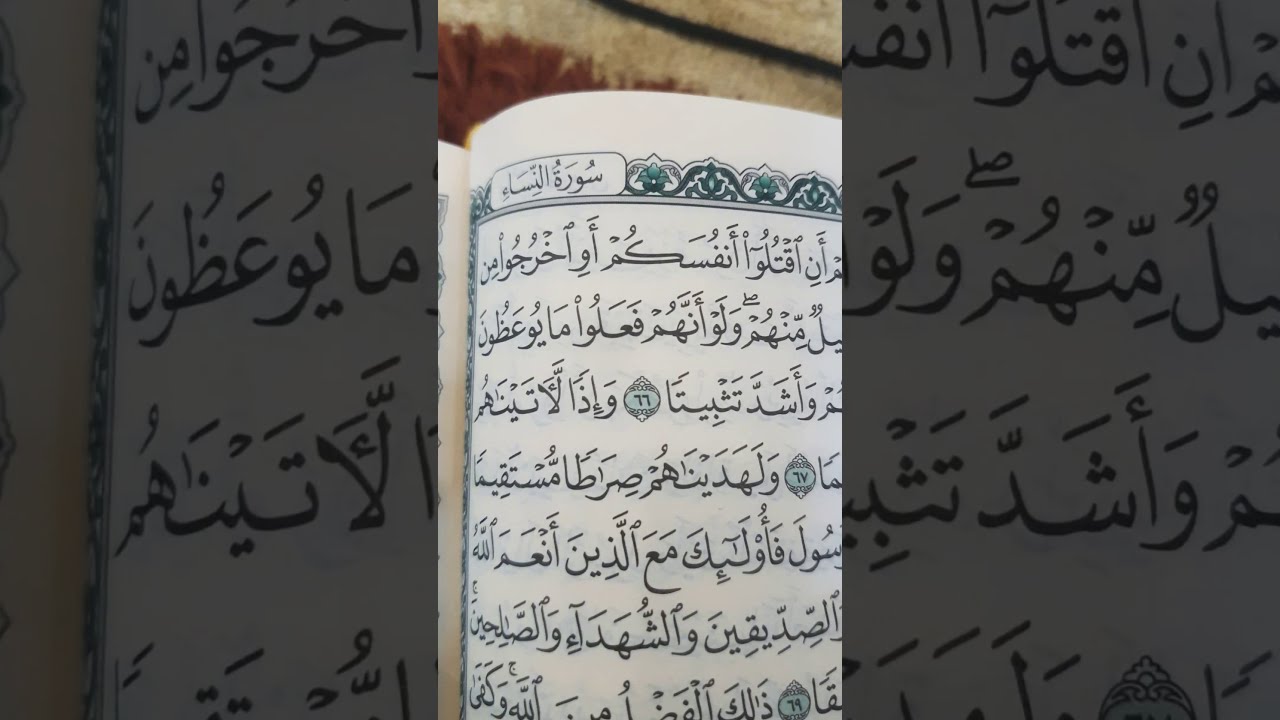 سُورَةُ النِّسَاءِ
أَنِ ٱقۡتُلُوٓاْ أَنفُسَكُمۡ أَوِ ٱخۡرُجُواْ مِن
مِّنۡهُمۡۖ وَلَوۡ أَنَّهُمۡ فَعَلُواْ مَا يُوعَظُونَ
وَأَشَدَّ تَثۡبِيتٗا ٦٦ وَإِذٗا لَّأٓتَيۡنَٰهُم
٦٧ وَلَهَدَيۡنَٰهُمۡ صِرَٰطٗا مُّسۡتَقِيمٗا
فَأُوْلَٰٓئِكَ مَعَ ٱلَّذِينَ أَنۡعَمَ ٱللَّهُ
وَٱلصِّدِّيقِينَ وَٱلشُّهَدَآءِ وَٱلصَّٰلِحِينَۚ
٦٩ ذَٰلِكَ ٱلۡفَضۡلُ مِنَ ٱللَّهِۚ وَكَفَىٰ